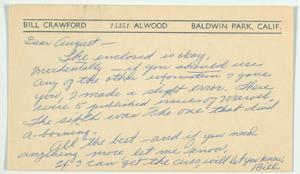 BILL CRAWFORD 15351 ALWOOD BALDWIN PARK, CALIF.
Dear August —
The enclosed is okay.
Incidentally — if you should use
any of the other information I gave
you, I made a slight error. There
were 5 published issues of Marvel.
The sixth was the one that died
a-borning.
All the best — and if you need
anything more let me know.
If I can get the cuts, will let you know.
Bill